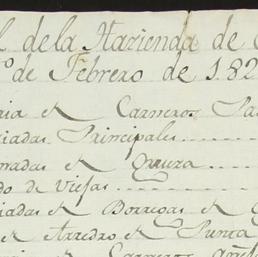 l de la Hazienda de
º de Febrero de 182
ria de Carneros Pa
iadas Principales
madas de
do de Viejas
iadas de Borregas de
de Arredro de Punta
de Carneros